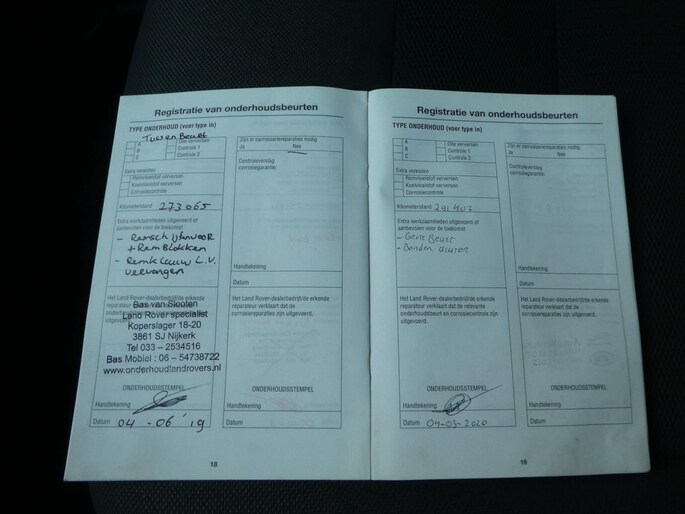 Registratie van onderhoudsbeurten
TYPE ONDERHOUD (voer type in)
Tussen Beurt
A
B
C
Olie verversen
Controle 1
Controle 2
Extra vereisten
Remvloeistof verversen
Koelvloeistof verversen
Corrosiecontrole
Kilometerstand 273065
Extra werkzaamheden uitgevoerd of
aanbevolen voor de toekomst
- Remschijfvoor
+ Rem Blokken
- Remklauw L.V.
vervangen
Het Land Rover-dealerbedrijf/de erkende
Bas van Slooten
Land Rover specialist
Koperslager 18-20
3861 SJ Nijkerk
Tel 033 – 2534516
Bas Mobiel : 06 – 54738722
www.onderhoudlandrovers.nl
ONDERHOUDSSTEMPEL
Handtekening
Datum 04 - 06 '19
Zijn er corrosiereparaties nodig
Ja Nee
Controleverslag
corrosiegarantie:
Handtekening
Datum
Het Land Rover-dealerbedrijf/de erkende
reparateur verklaart dat de
corrosiereparaties zijn uitgevoerd.
ONDERHOUDSSTEMPEL
Handtekening
Datum
18
Registratie van onderhoudsbeurten
TYPE ONDERHOUD (voer type in)
A
B
C
Olie verversen
Controle 1
Controle 2
Extra vereisten
Remvloeistof verversen
Koelvloeistof verversen
Corrosiecontrole
Kilometerstand
Extra werkzaamheden uitgevoerd of
aanbevolen voor de toekomst
- Beurt
- Banden
Het Land Rover-dealerbedrijf/de erkende
reparateur verklaart dat de relevante
onderhoudsbeurt en corrosiecontrole zijn
uitgevoerd.
ONDERHOUDSSTEMPEL
Handtekening
Datum 04-03-2020
Zijn er corrosiereparaties nodig
Ja Nee
Controleverslag
corrosiegarantie:
Handtekening
Datum
Het Land Rover-dealerbedrijf/de erkende
reparateur verklaart dat de
corrosiereparaties zijn uitgevoerd.
ONDERHOUDSSTEMPEL
Handtekening
Datum
19